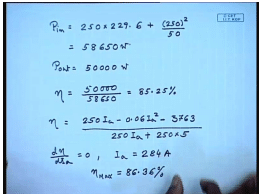 Pin = 250 × 229.6 + (250)²/50
= 58650 W
Pout = 50000 W
η = 50000/58650 = 85.25%
η = 250Ia - 0.06Ia² - 3763 / 250Ia + 250×5
dη/dIa = 0, Ia = 284 A
ηmax = 86.36%